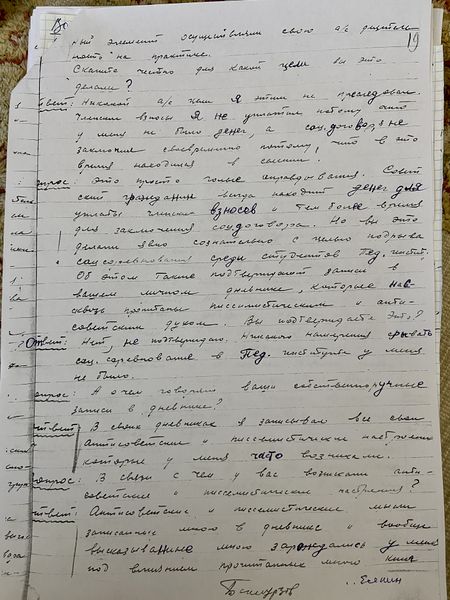 19
ный элемент осуществляли свою а/с деятель-
ность на практике.
Скажите честно для какой цели вы это
делали?
Ответ: Никакой а/с цели я этим не преследовал.
Членские взносы я не уплатил потому что
у меня не было денег, а соц.договор я не
заключил своевременно потому, что в это
время находился в
Вопрос: Это просто голые оправдывания. Совет-
ский гражданин всегда находит денег для
уплаты членских взносов и тем более время
для заключения соцдоговора. Но вы это
делали явно сознательно с целью подрыва
соцсоревнования среди студентов Пед. инстит.
Об этом также подтверждают записи в
вашем личном дневнике, которые нас-
квозь пропитаны пессимистическим и анти-
советским духом. Вы подтверждаете это?
Ответ: Нет, не подтверждаю. Никакого намерения срывать
соц. соревнование в Пед. институте у меня
не было.
Вопрос: А о чем говорят ваши собственноручные
записи в дневнике?
Ответ: В своих дневниках я записывал все свои
Антисоветские и пессимистические настроения
которые у меня часто возникали.
Вопрос: В связи с чем у вас возникали анти-
советские и пессимистические настроения?
Ответ: Антисоветские и пессимистические мысли
записанные мною в дневнике и вообще
высказывание мною зарождались у меня
под влиянием прочитанных мною книг
Есенин